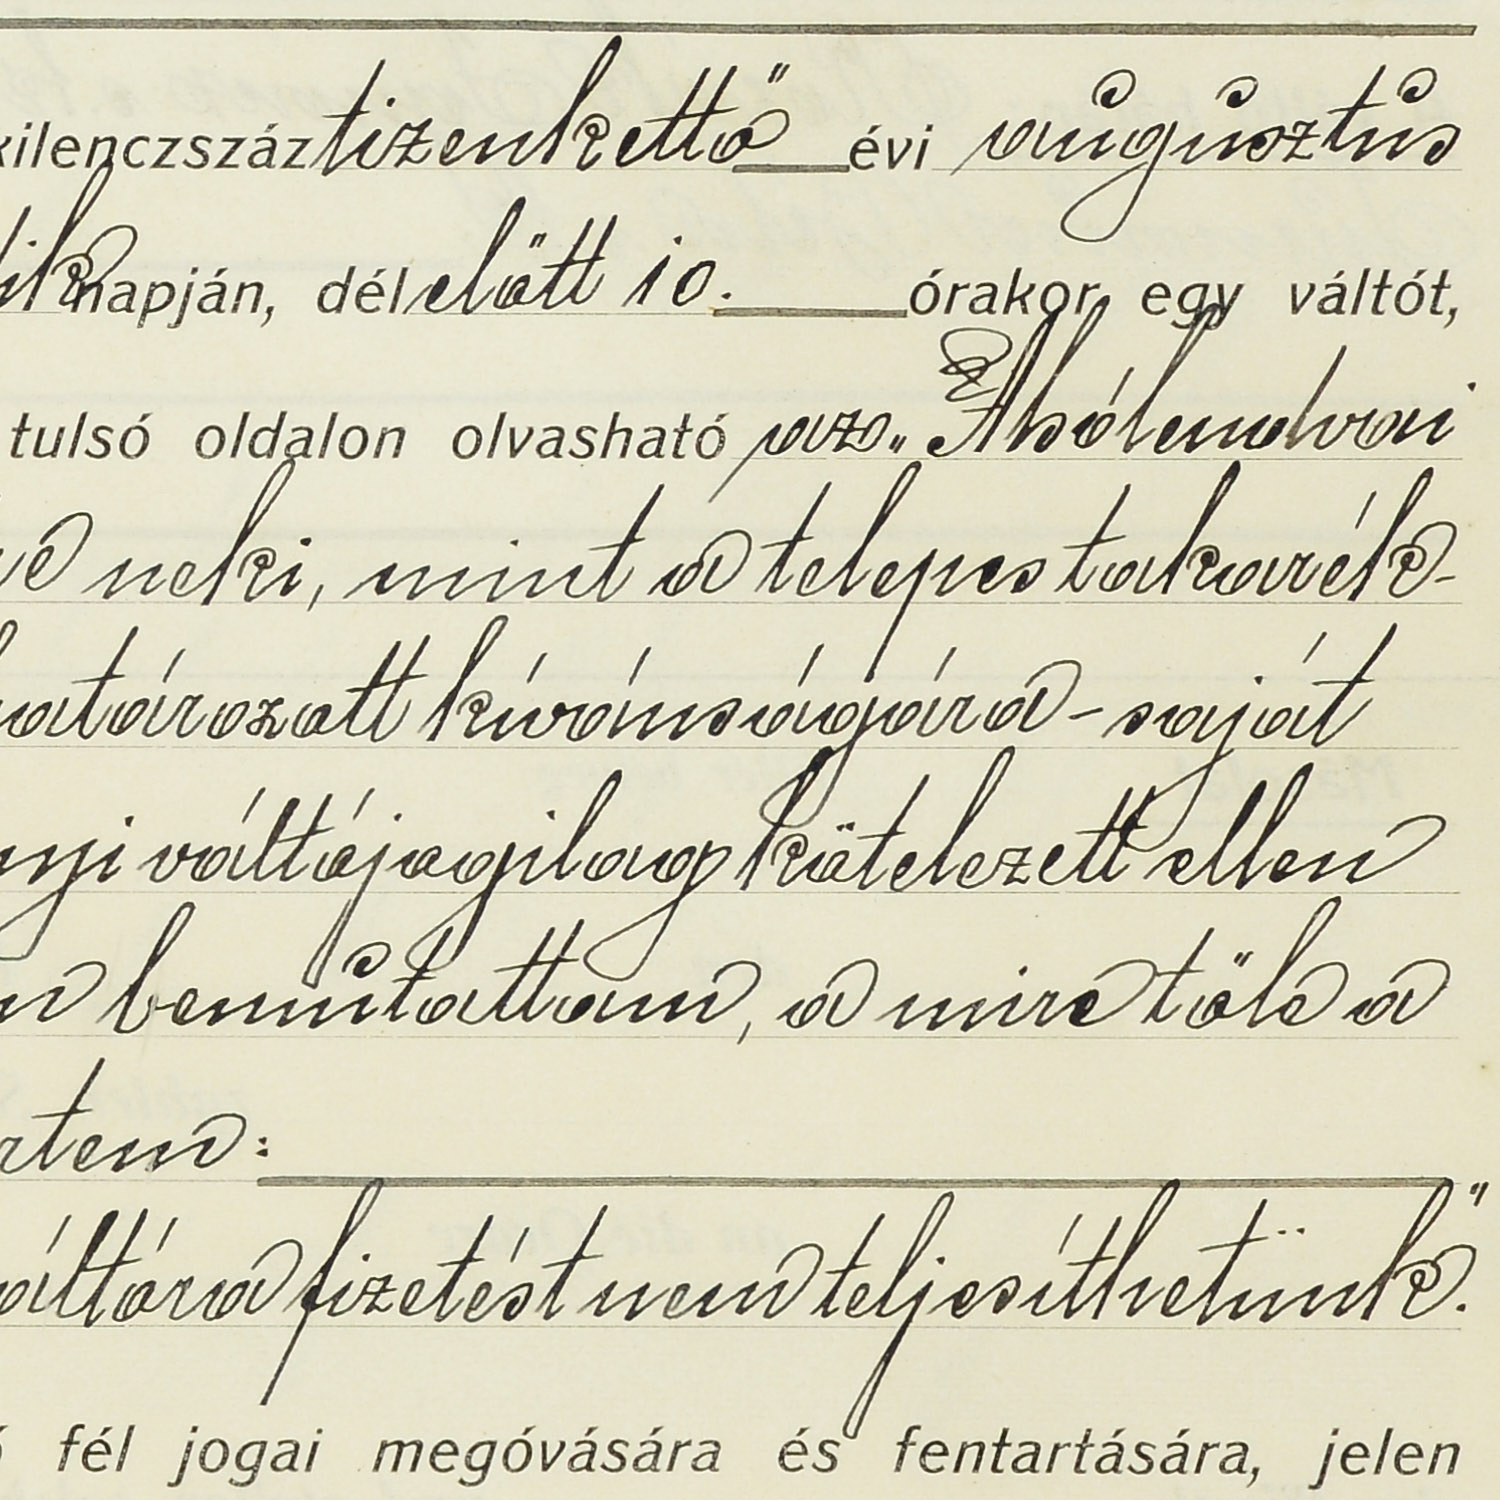 kilenczszáz tizenkettő évi augusztus
dik napján, délelőtt 10. órakor egy váltót,
tulsó oldalon olvasható az „Alsólendvai
neki, mint a telepes takarék-
határozott kívánságára - saját
váltójogilag kötelezett ellen
bemutattam, a mire tőle a
rtem:
váltóra fizetést nem teljesíthetünk."
fél jogai megóvására és fentartására, jelen